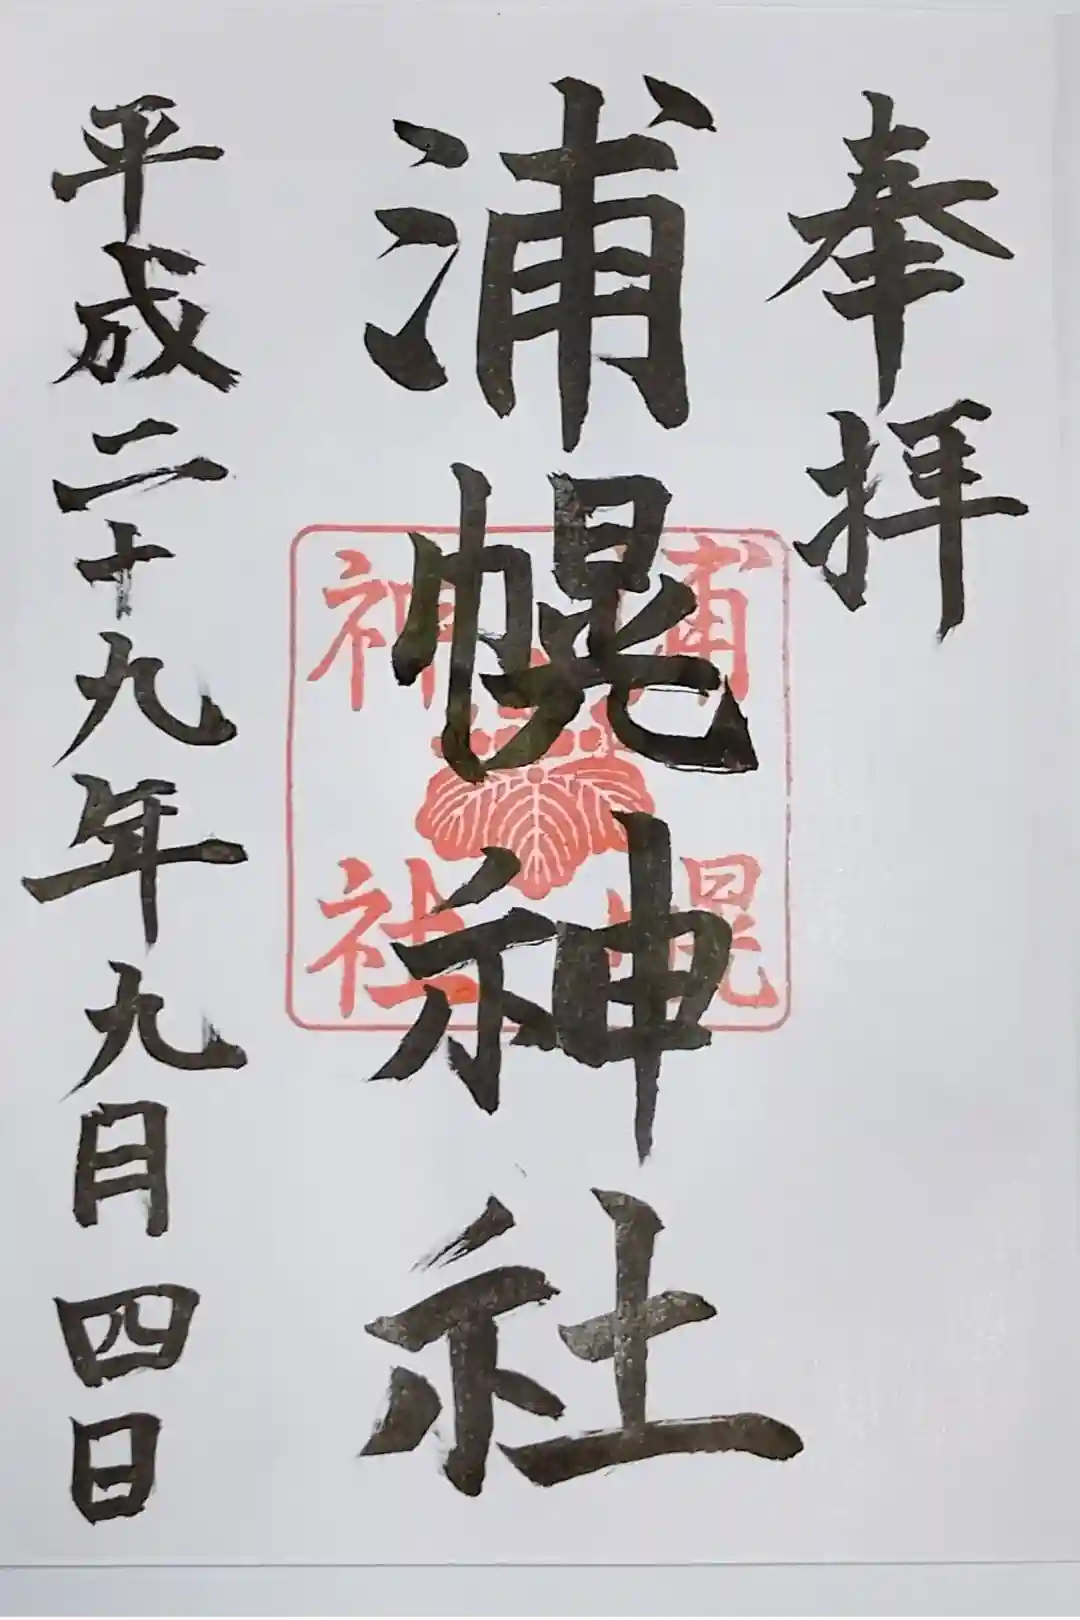 奉拝
浦幌神社
浦幌
神社
平成二十九年九月四日